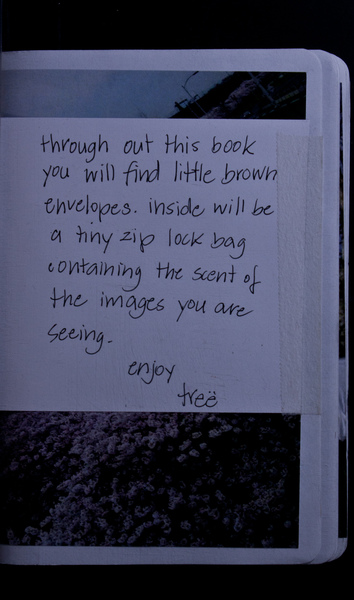 through out this book
you will find little brown
envelopes. inside will be
a tiny zip lock bag
containing the scent of
the images you are
seeing.
enjoy
treë